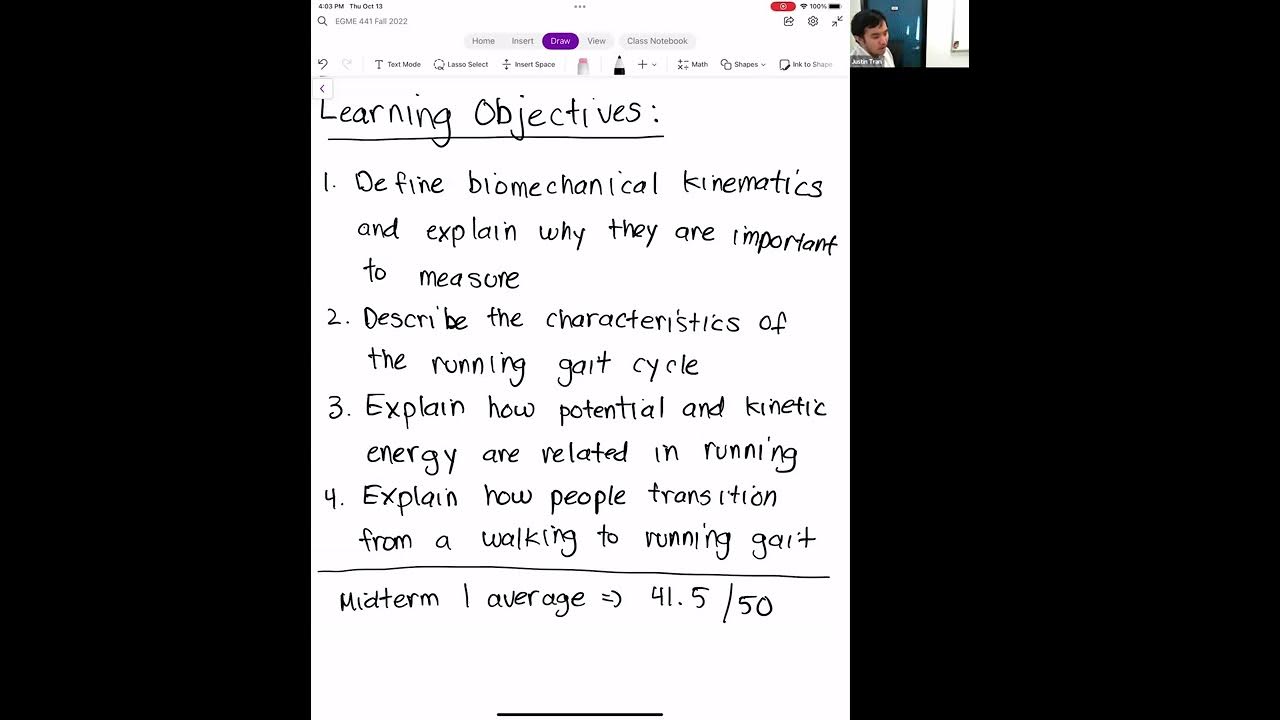 4:03 PM Thu Oct 13
100%
EGME 441 Fall 2022
Home Insert Draw View Class Notebook
Text Mode Lasso Select Insert Space Math Shapes Ink to Shape
Justin Tran
Learning Objectives:
1. Define biomechanical kinematics
and explain why they are important
to measure
2. Describe the characteristics of
the running gait cycle
3. Explain how potential and kinetic
energy are related in running
4. Explain how people transition
from a walking to running gait
Midterm 1 average => 41.5/50